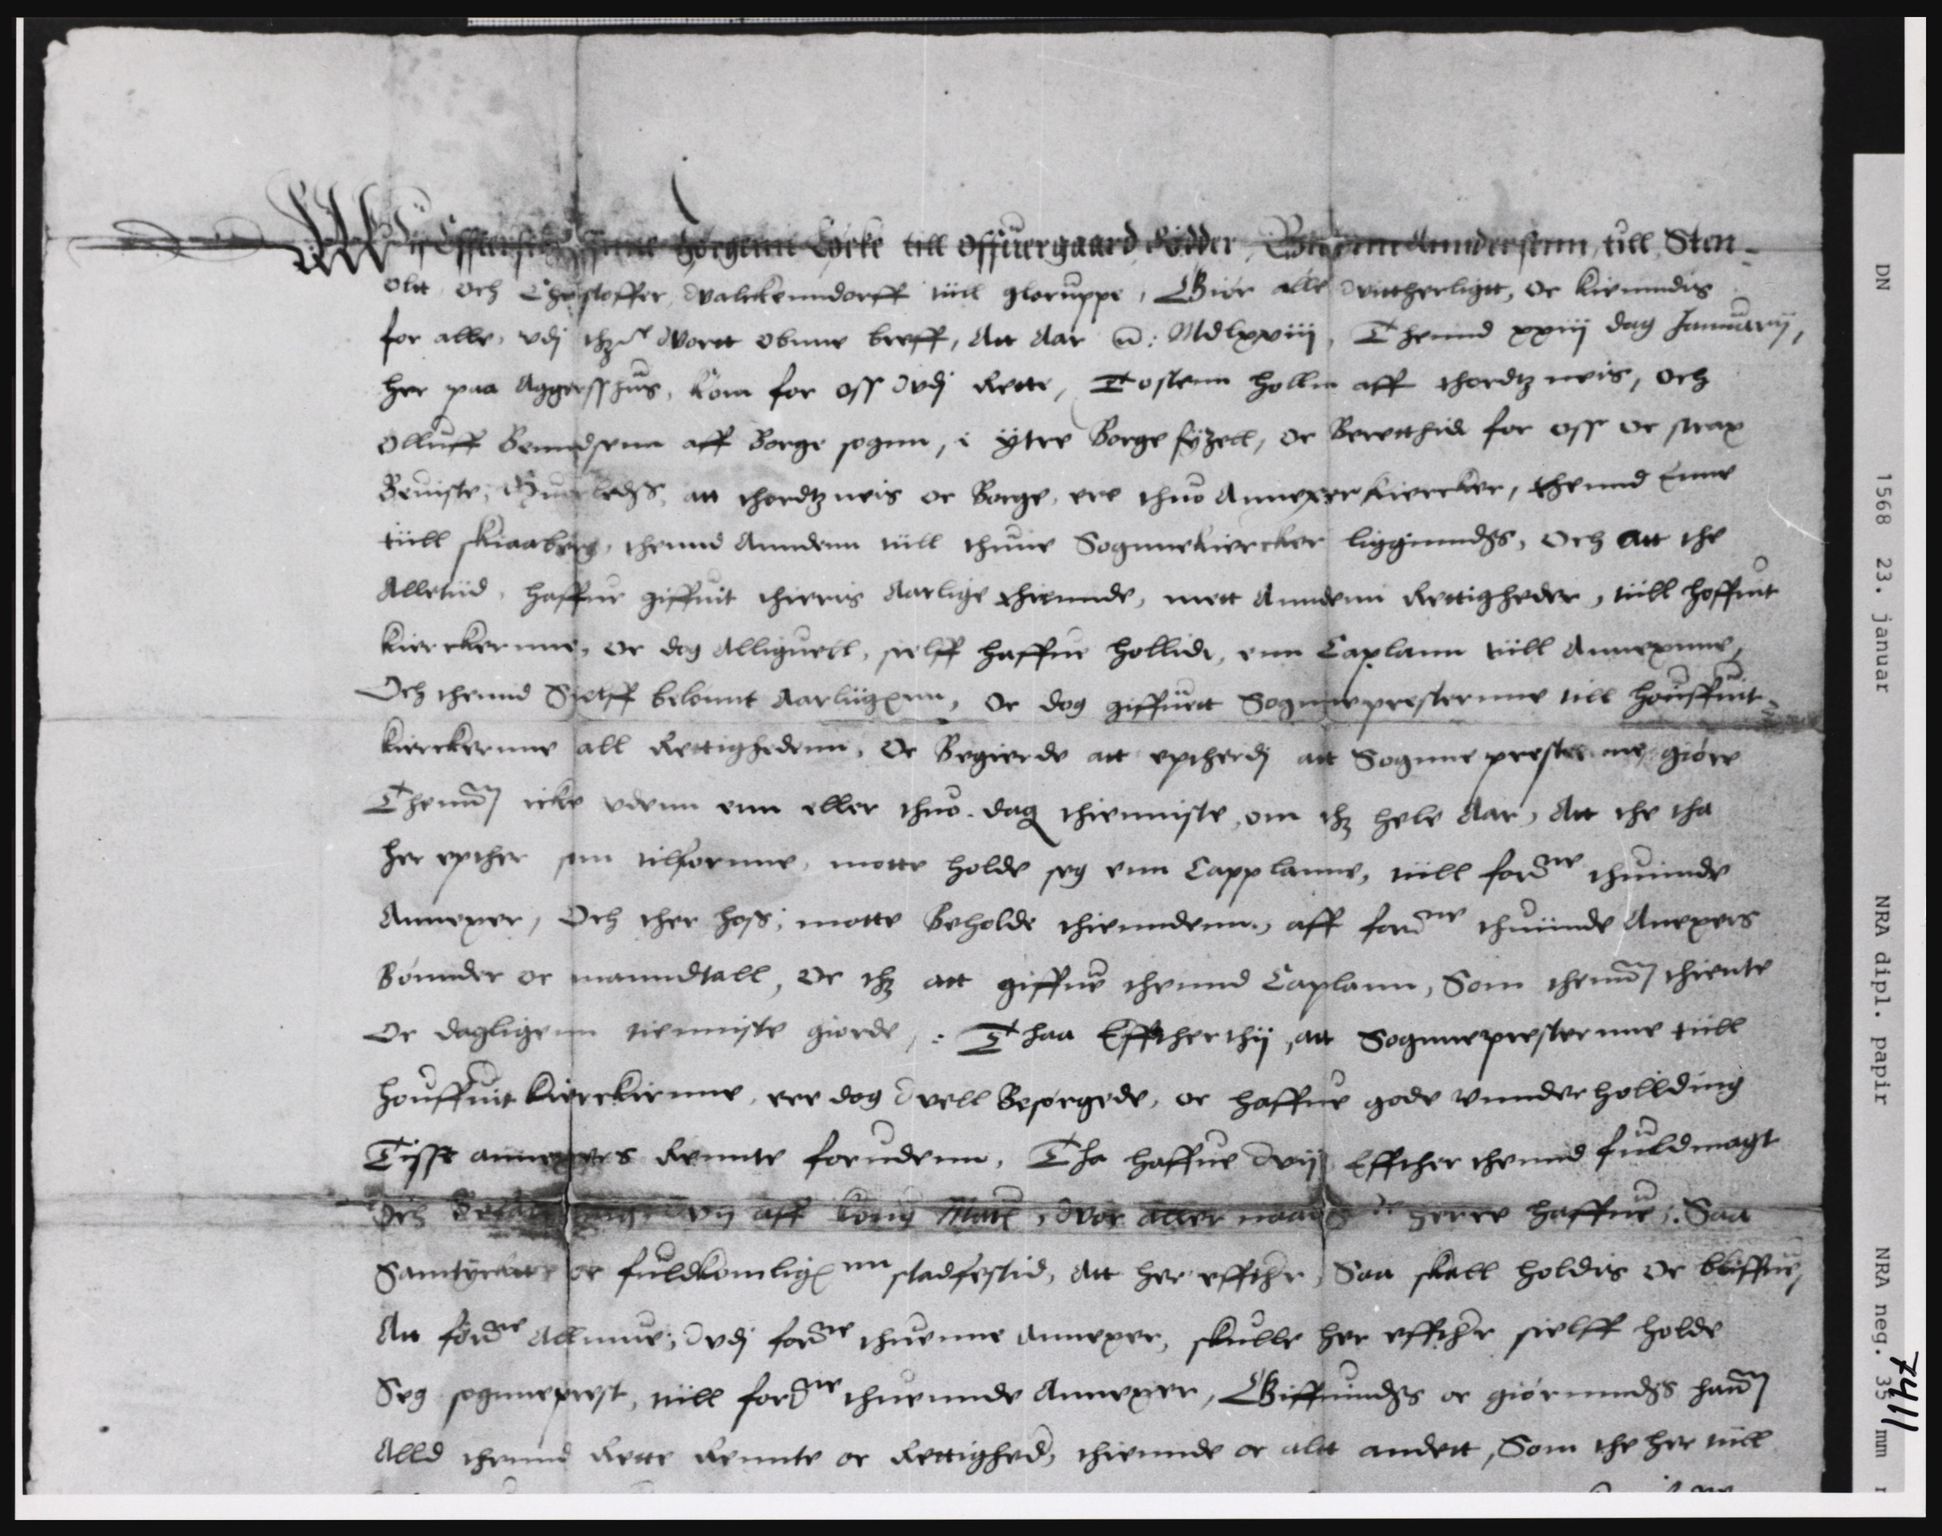 Wij Effterschne Jørgenn Lycke till Offuergaard Ridder, Biørnn Anndersenn, till Sten-
oltt och Christoffer Walckenndorff tiill gloruppe, Giør alle witherligtt, oc kienndis
for alle, vdj thz wortt obnne breff, Att Aar &c: Mdlxviii, Thennd xxiij dag Januarij,
her paa Aggersshus, kom for oss vdj Rette, Tostenn hollm aff thordtz neis, och
olluff Benndsenn aff Borge sognn, i ÿtre Borge syzell, oc Beretthide for oss oc strax
Beuiste, att thordtz neis oc Borge, ere thuo Annexer kiercker, thennd Enne
tiill skiaaberg, thennd Anndenn tiill thune Sognnekiercker liggenndis, Och Att the
Alletiid, haffue giffuit thieris Aarlige thiennde, mett Anndenn Rettigheder, tiill hoffuit
kierckernne, oc dog Alliguell, sielff haffue hollidt, enn Caplann tiill Annexnne,
Och thennd Sielff belonnt Aarligenn, oc dog giffuett Sognnepresternne till houffuit-
kierckernne all Rettighedenn, Oc Begierde att eptherdj att Sognne presternne giøre
Thennom icke vdenn enn eller thuo dag thienniste, om thz hele Aar, Att the tha
her epther som tilfornne, motte holde seg enn Capplanne, tiill fordne thuinde
Annexer, Och ther hoss, motte Beholde thienndenn, aff fordne thuinde Anexers
Bønnder oc manndtall, Oc thz att giffue thennd Caplann, Som thennom thiente
Oc dagligenn tienniste giorde, : Thaa Effther thij, att Sognnepresternne tiill
houffuit kierckernne, ere dog vell Besørgede, oc haffue gode vnnderhollding
Tisse annexers Rennte forudenn, Tha haffue wij Effther thennd fuldmagt
Och wij aff kong Matt, wor aller naadigste herre haffue, Saa
Samtyckt oc fuldkomligenn stadfestid, Att her effther, Saa skall holdis Oc bliffue,
Att fordne Allmue, vdj fordne thuenne Annexer, skulle her effther sielff holde
Seg sognneprest, tiill fordne thuennde Annexer, Giffuindis oc giørenndis hannom
Alld thennd Rette Rennte oc Rettighed, thiennde oc altt andett, Som the her tiill
DN 1568 23. januar NRA dipl. papir NRA neg. 35 mm
7411